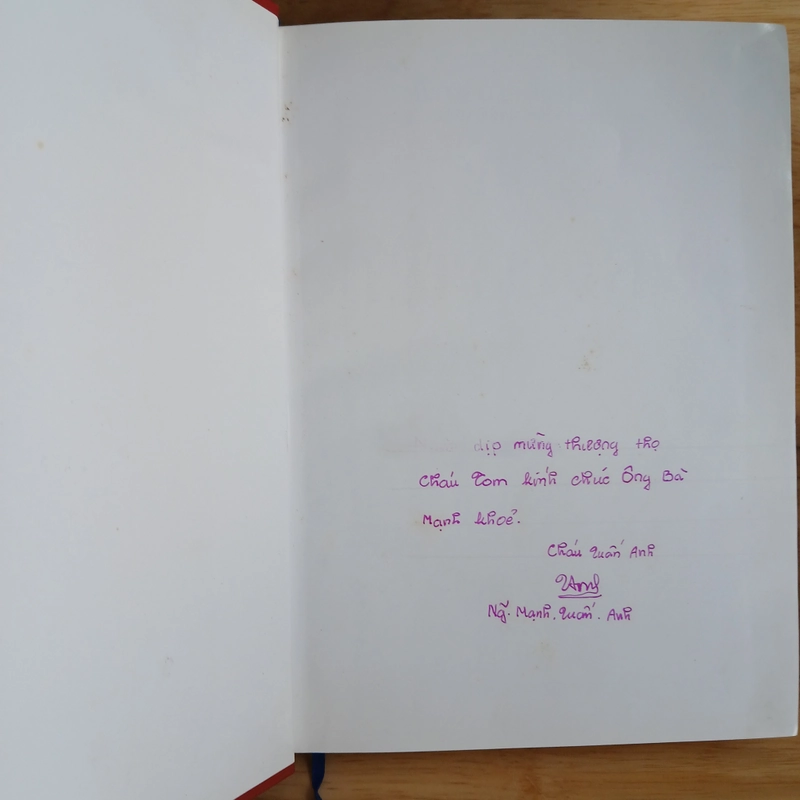 dịp mừng thượng thọ
Cháu Tom kính chúc Ông Bà
Mạnh khoẻ.
Cháu Tuấn Anh
Ng~. Mạnh. Tuấn. Anh